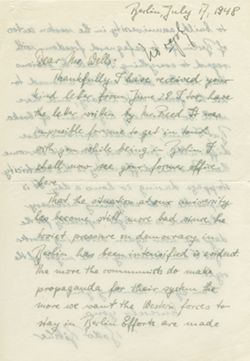 Berlin, July 17, 1948
Dear Mr. Wells:
Thankfully I have received your
kind letter from June 28. I too have
the letter written by Mr. Reed. It was
impossible for me to get in touch
with you while being in Berlin. I
shall now see your former office
here.
That the situation at our university
has become still more bad since the
soviet pressure on democracy in
Berlin has been intensified is evident.
The more the communists do make
propaganda for their system the
more we want the Western forces to
stay in Berlin. Efforts are made